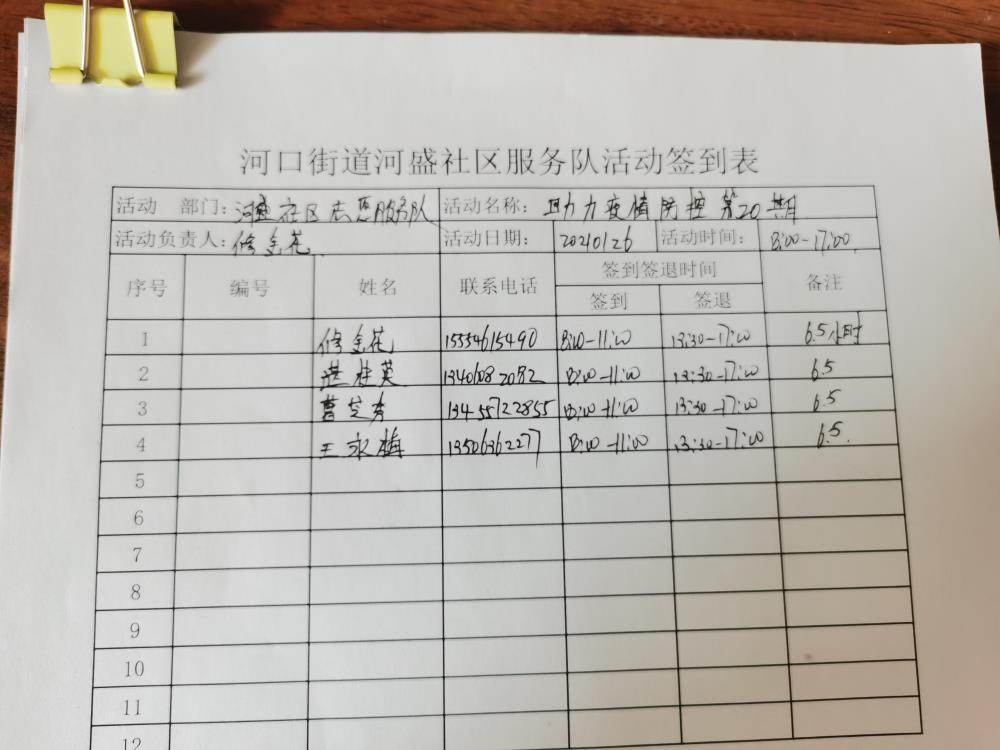 河口街道河盛社区服务队活动签到表
活动 部门：河盛社区志愿服务队 活动名称：助力疫情防控第20期
活动负责人：修金花 活动日期：20210126 活动时间：8:00-17:00
序号 编号 姓名 联系电话 签到签退时间 备注
签到 签退
1 修金花 15554615490 8:00-11:00 13:30-17:00 6.5小时
2 桂英 13406082082 8:00-11:00 13:30-17:00 6.5
3 曹芝秀 13455722855 8:00-11:00 13:30-17:00 6.5
4 王永梅 13506362277 8:00-11:00 13:30-17:00 6.5
5
6
7
8
9
10
11
12